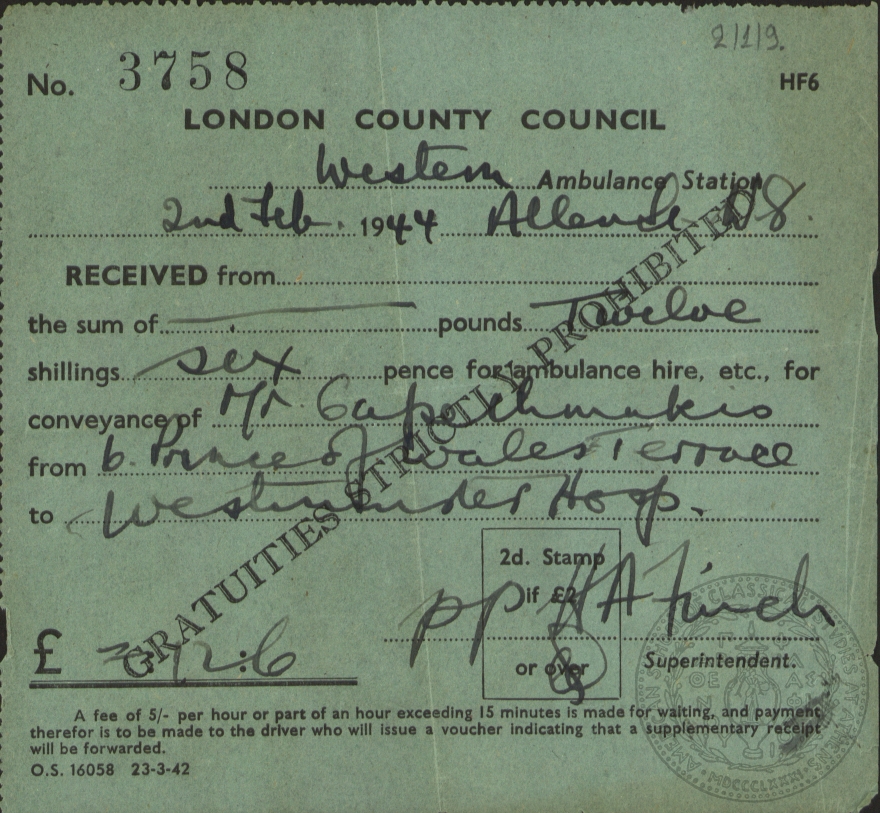 2/1/9.
No. 3758 HF6
LONDON COUNTY COUNCIL
Western Ambulance Station
2nd Feb. 1944
RECEIVED from
the sum of pounds Twelve
shillings six pence for ambulance hire, etc., for
conveyance of Mr
from 6. Prince of Wales Terrace
to Westminster Hosp.
GRATUITIES STRICTLY PROHIBITED
2d. Stamp
if £2
or over
pp H A Finch
£ 12:6
Superintendent.
A fee of 5/- per hour or part of an hour exceeding 15 minutes is made for waiting, and payment
therefor is to be made to the driver who will issue a voucher indicating that a supplementary receipt
will be forwarded.
O.S. 16058 23-3-42